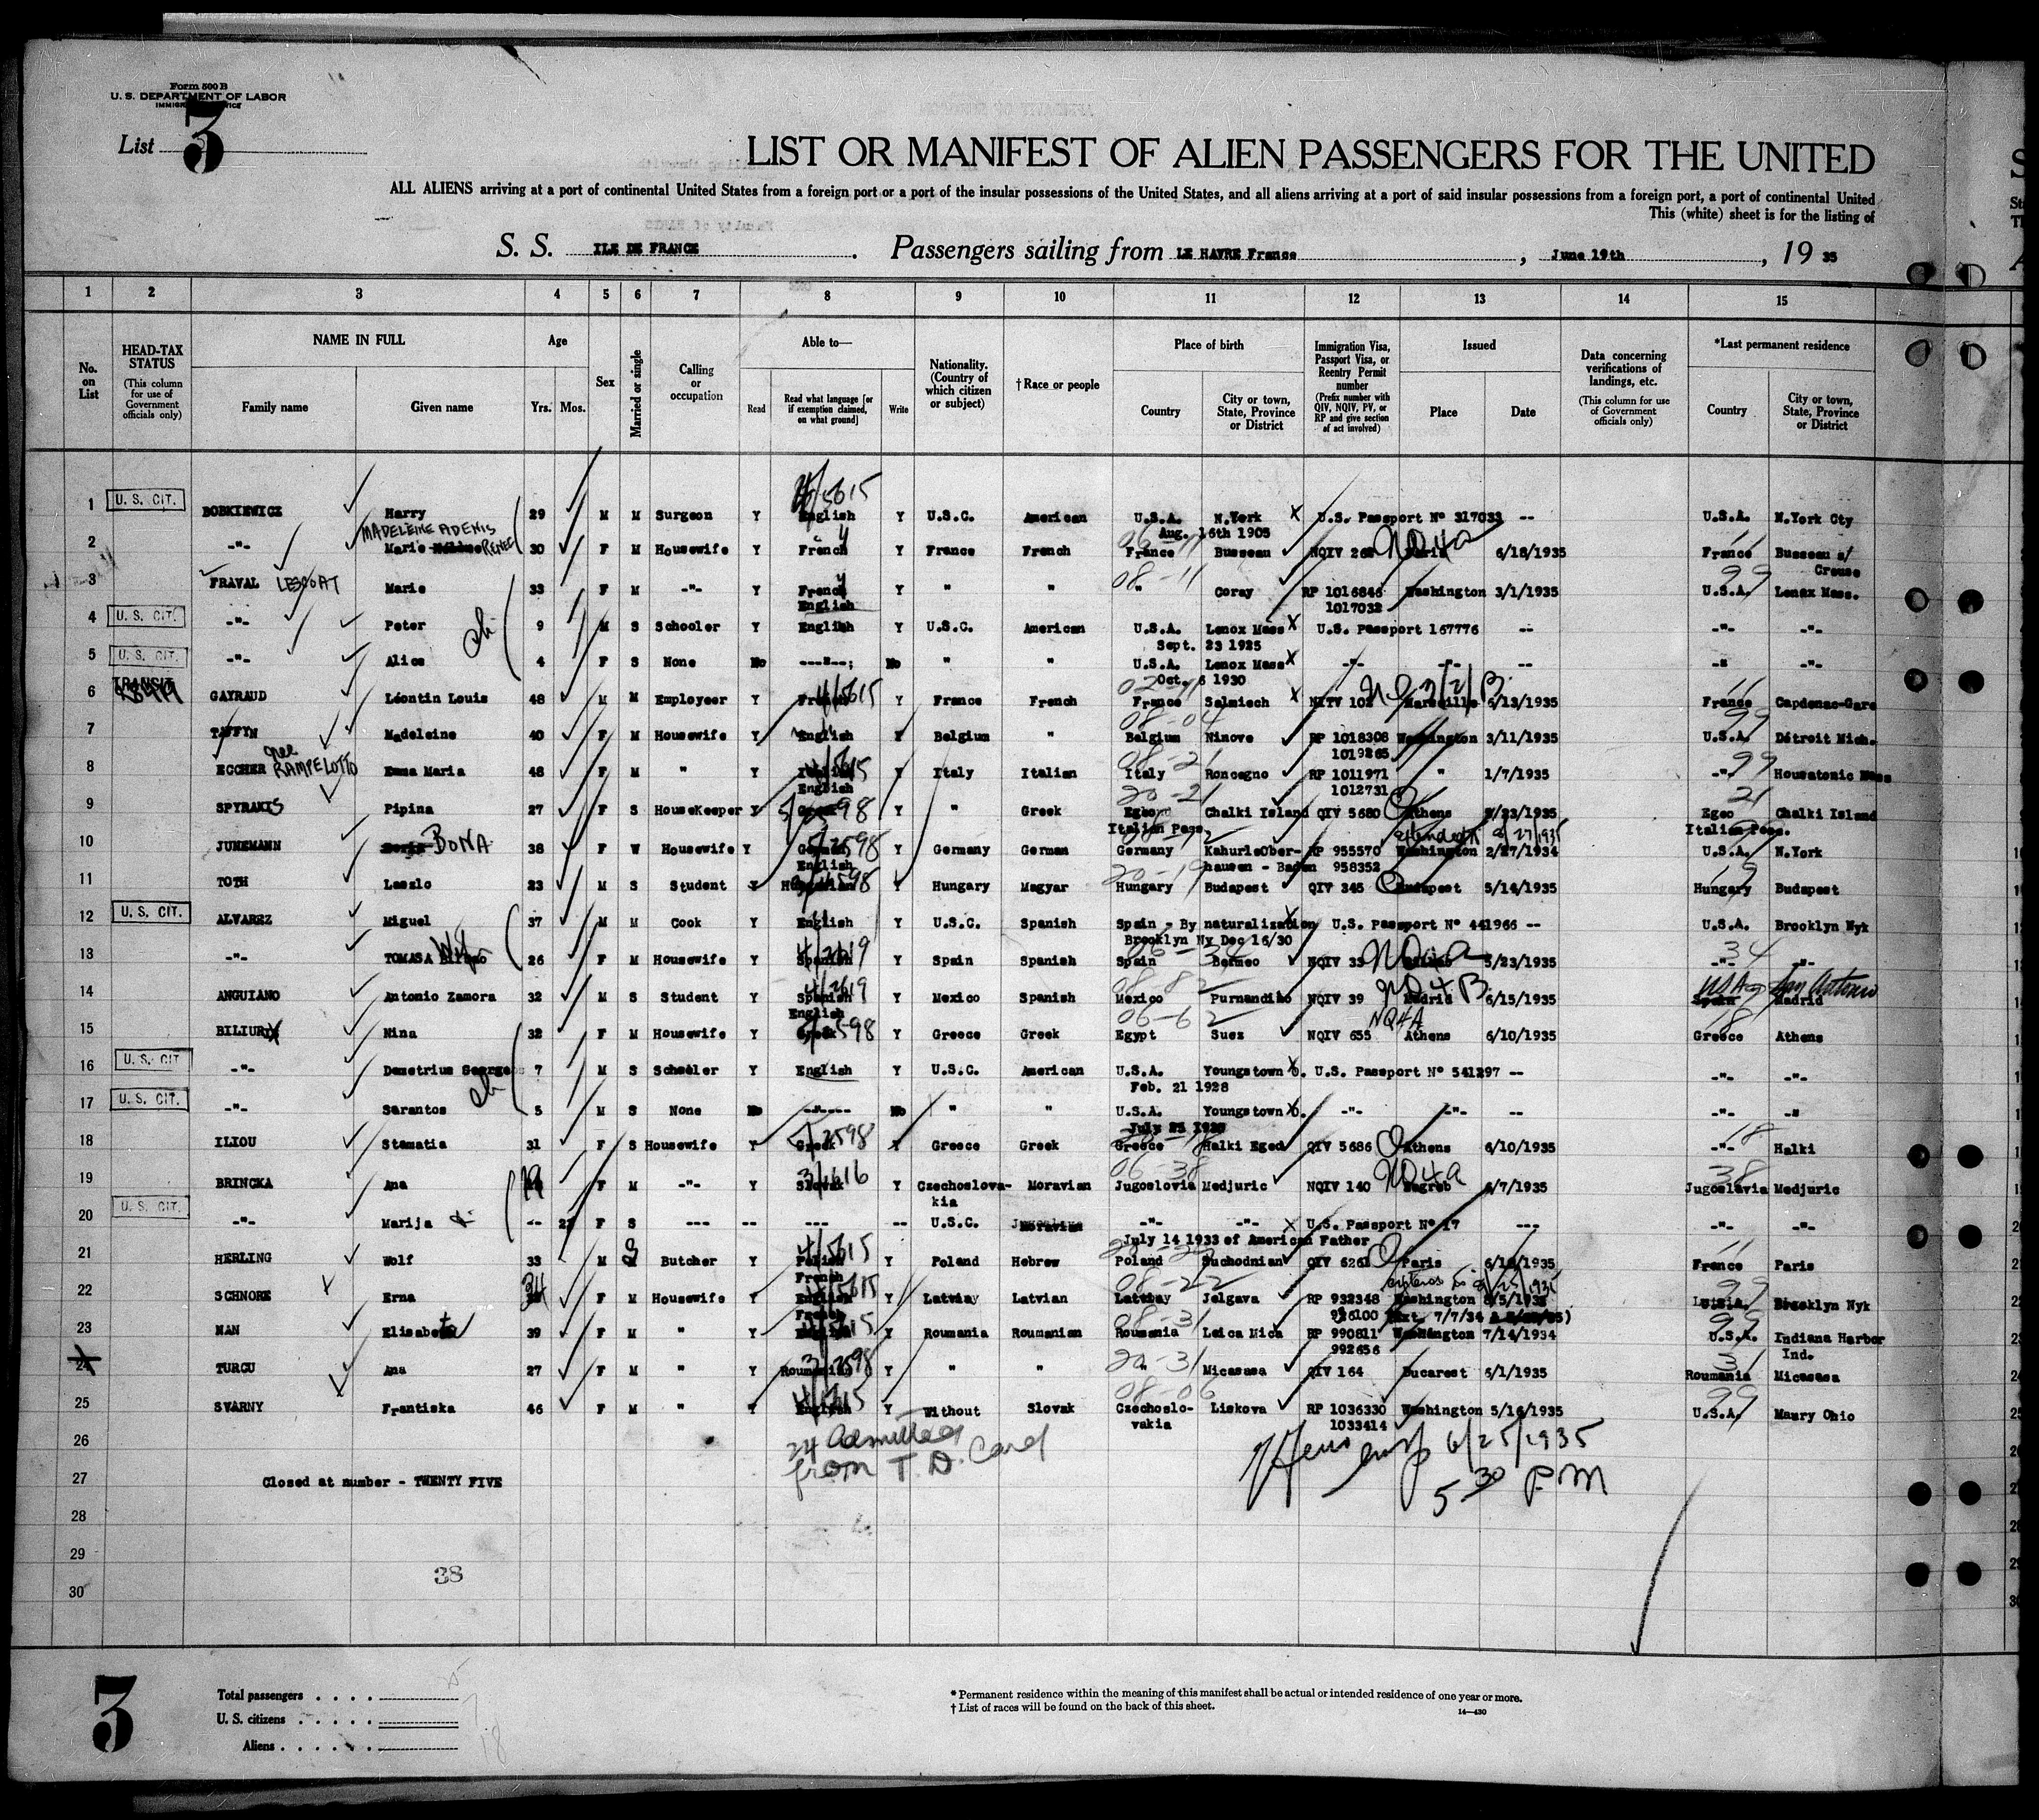 Form 500 B
U. S. DEPARTMENT OF LABOR
List 3
LIST OR MANIFEST OF ALIEN PASSENGERS FOR THE UNITED
ALL ALIENS arriving at a port of continental United States from a foreign port or a port of the insular possessions of the United States, and all aliens arriving at a port of said insular possessions from a foreign port, a port of continental United
This (white) sheet is for the listing of
S. S. ILE DE FRANCE. Passengers sailing from LE HAVRE France, June 19th, 19 35
1 2 3 4 5 6 7 8 9 10 11 12 13 14 15
No. on List
HEAD-TAX STATUS (This column for use of Government officials only)
NAME IN FULL Family name Given name
Age Yrs. Mos.
Sex
Married or single
Calling or occupation
Able to— Read Read what language [or if exemption claimed, on what ground] Write
Nationality. (Country of which citizen or subject)
† Race or people
Place of birth Country City or town, State, Province or District
Immigration Visa, Passport Visa, or Reentry Permit number (Prefix number with QIV, NQIV, PV, or RP and give section of act involved)
Issued Place Date
Data concerning verifications of landings, etc. (This column for use of Government officials only)
*Last permanent residence Country City or town, State, Province or District
1 U. S. CIT. BOBKIEWICZ Harry 29 M M Surgeon Y English Y U.S.C. American U.S.A. N.York X U.S. Passport Nº 317033 -- U.S.A. N.York Cty
MADELEINE ADENIS Aug. 16th 1905
2 -"- Marie RENEE 30 F M Housewife Y French Y France French France Busseau NQIV NQ4a 6/18/1935 France Busseau s/ Creuse
3 FRAVAL LESCOAT Marie 33 F M -"- Y French English Y " " 08-11 " Coray RP 1016846 1017032 Washington 3/1/1935 99 U.S.A. Lenox Mass.
4 U. S. CIT. -"- Peter 9 M S Schooler Y English Y U.S.C. American U.S.A. Lenox Mass X U.S. Passport 167776 -- -"- -"-
Sept. 23 1925
5 U. S. CIT. -"- Alice 4 F S None No No " " U.S.A. Lenox Mass X -"- -"- -- -" -"-
Oct. 6 1930
6 TRANSIT GAYRAUD Léontin Louis 48 M M Employeer Y French Y France French France Salmiech X Marseille 6/13/1935 France Capdenac-Gare
7 TAFFYN Madeleine 40 F M Housewife Y English Y Belgium " 08-04 Belgium Ninove RP 1018308 1019265 Washington 3/11/1935 99 U.S.A. Détroit Mich.
8 ECCHER nee RAMPELOTTO Emma Maria 48 F M " Y English Y Italy Italian 08-21 Italy Roncegno RP 1011971 1012731 " 1/7/1935 -"- 99 Housatonic Mass
9 SPYRAKIS Pipina 27 F S HouseKeeper Y Y " Greek 20-21 Egeo Italian Poss. Chalki Island QIV 5680 Athens 21 Egeo Italian Poss. Chalki Island
10 JUNEMANN BONA 38 F W Housewife Y German English Y Germany German Germany RP 955570 958352 Washington 2/27/1934 U.S.A. N.York
11 TOTH Laszlo 23 M S Student Y Y Hungary Magyar Hungary Budapest QIV 345 Budapest 5/14/1935 Hungary Budapest
12 U. S. CIT. ALVAREZ Miguel 37 M M Cook Y English Y U.S.C. Spanish Spain - By naturalization U.S. Passport Nº 441966 -- U.S.A. Brooklyn Nyk
Brooklyn Ny Dec 16/30
13 -"- TOMASA 26 F M Housewife Y Spanish Y Spain Spanish Spain Bermeo NQIV 33 NQ4a 5/23/1935 34 -"- -"-
14 ANGUIANO Antonio Zamora 32 M S Student Y Spanish English Y Mexico Spanish Mexico NQIV 39 Madrid 6/15/1935 USA San Antonio Madrid
15 BILIURIX Nina 32 F M Housewife Y Greek Y Greece Greek 06-62 Egypt Suez NQIV 655 NQ4A Athens 6/10/1935 18 Greece Athens
16 U. S. CIT -"- Demetrius George 7 M S Schooler Y English Y U.S.C. American U.S.A. Youngstown O. U.S. Passport Nº 541297 -- -"- -"-
Feb. 21 1928
17 U. S. CIT. -"- Sarantos 5 M S None No No " " U.S.A. Youngstown O. -"- -"- -- -"- -"
18 ILIOU Stamatia 31 F S Housewife Y Greek Y Greece Greek Greece Halki Eged QIV 5686 Athens 6/10/1935 -"- 18 Halki
19 BRINCKA Ana F M -"- Y Slovak Y Czechoslovakia Moravian 06-38 Jugoslovia Medjuric NQIV 140 NQ4a Zagreb 6/7/1935 38 Jugoslavia Medjuric
20 U. S. CIT. -"- Marija -- F S --- -- --- -- U.S.C. Moravian -"- -"- X U.S. Passport Nº 17 --- -"- -"-
July 14 1933 of American Father
21 HERLING Wolf 33 M S Butcher Y Polish French Y Poland Hebrew Poland Suchodnian QIV 6261 Paris France Paris
22 SCHNORE Erna 34 F M Housewife Y English French Y Latvia Latvian 08-22 Latvia Jelgava RP 932348 936100 Washington 99 U.S.A. Brooklyn Nyk
23 NAN Elisabeta 39 F M " Y Y Roumania Roumanian 08-31 Roumania Leica Mica RP 990811 992656 Washington 7/14/1934 99 U.S.A. Indiana Harbor Ind.
24 TURCU Ana 27 F M " Y Roumanian Y " " 20-31 " Micasasa QIV 164 Bucarest 6/1/1935 31 Roumania Micasasa
25 SVARNY Frantiska 46 F M " Y English Y Without Slovak 08-06 Czechoslovakia Liskova RP 1036330 1033414 Washington 5/16/1935 99 U.S.A. Maury Ohio
26 24 admitted from T. D. Card 6/25/1935 5 30 P.M
27 Closed at number - TWENTY FIVE
28
29
30
38
3
Total passengers
U. S. citizens 7
Aliens 18
* Permanent residence within the meaning of this manifest shall be actual or intended residence of one year or more.
† List of races will be found on the back of this sheet.
14—430